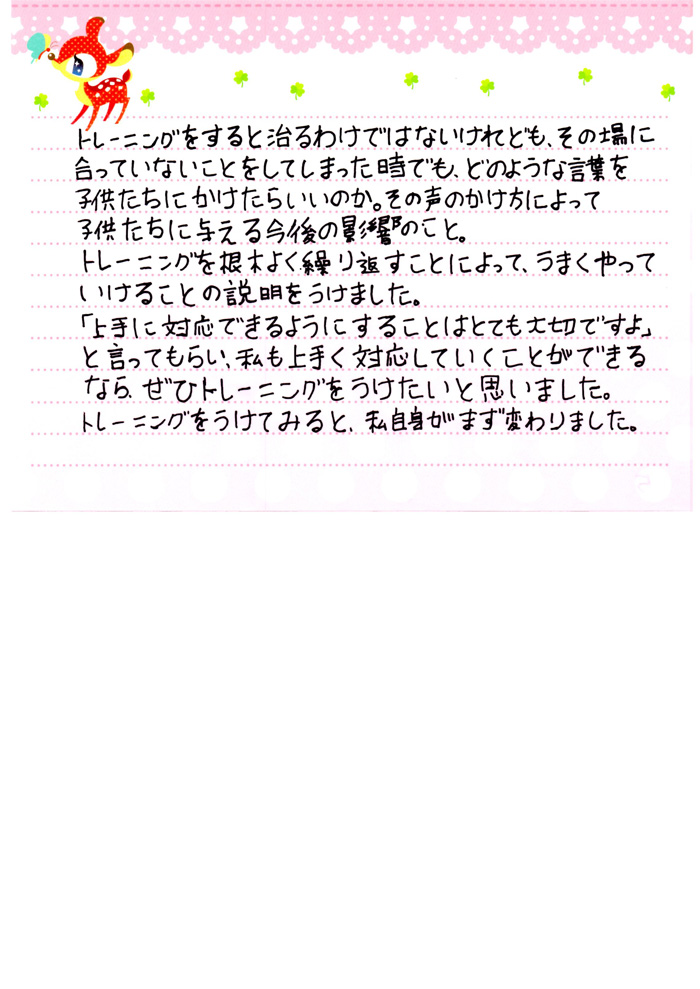 トレーニングをすると治るわけではないけれども、その場に
合っていないことをしてしまった時でも、どのような言葉を
子供たちにかけたらいいのか。その声のかけ方によって
子供たちに与える今後の影響のこと。
トレーニングを根木よく繰り返すことによって、うまくやって
いけることの説明をうけました。
「上手に対応できるようにすることはとても大切ですよ」
と言ってもらい、私も上手く対応していくことができる
なら、ぜひトレーニングをうけたいと思いました。
トレーニングをうけてみると、私自身がまず変わりました。